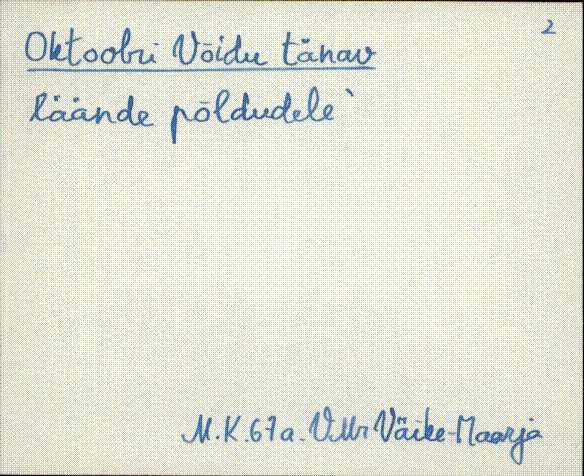 2
Oktoobri Võidu tänav
läände põldudele`
M.K. 67a. VMr Väike-Maarja